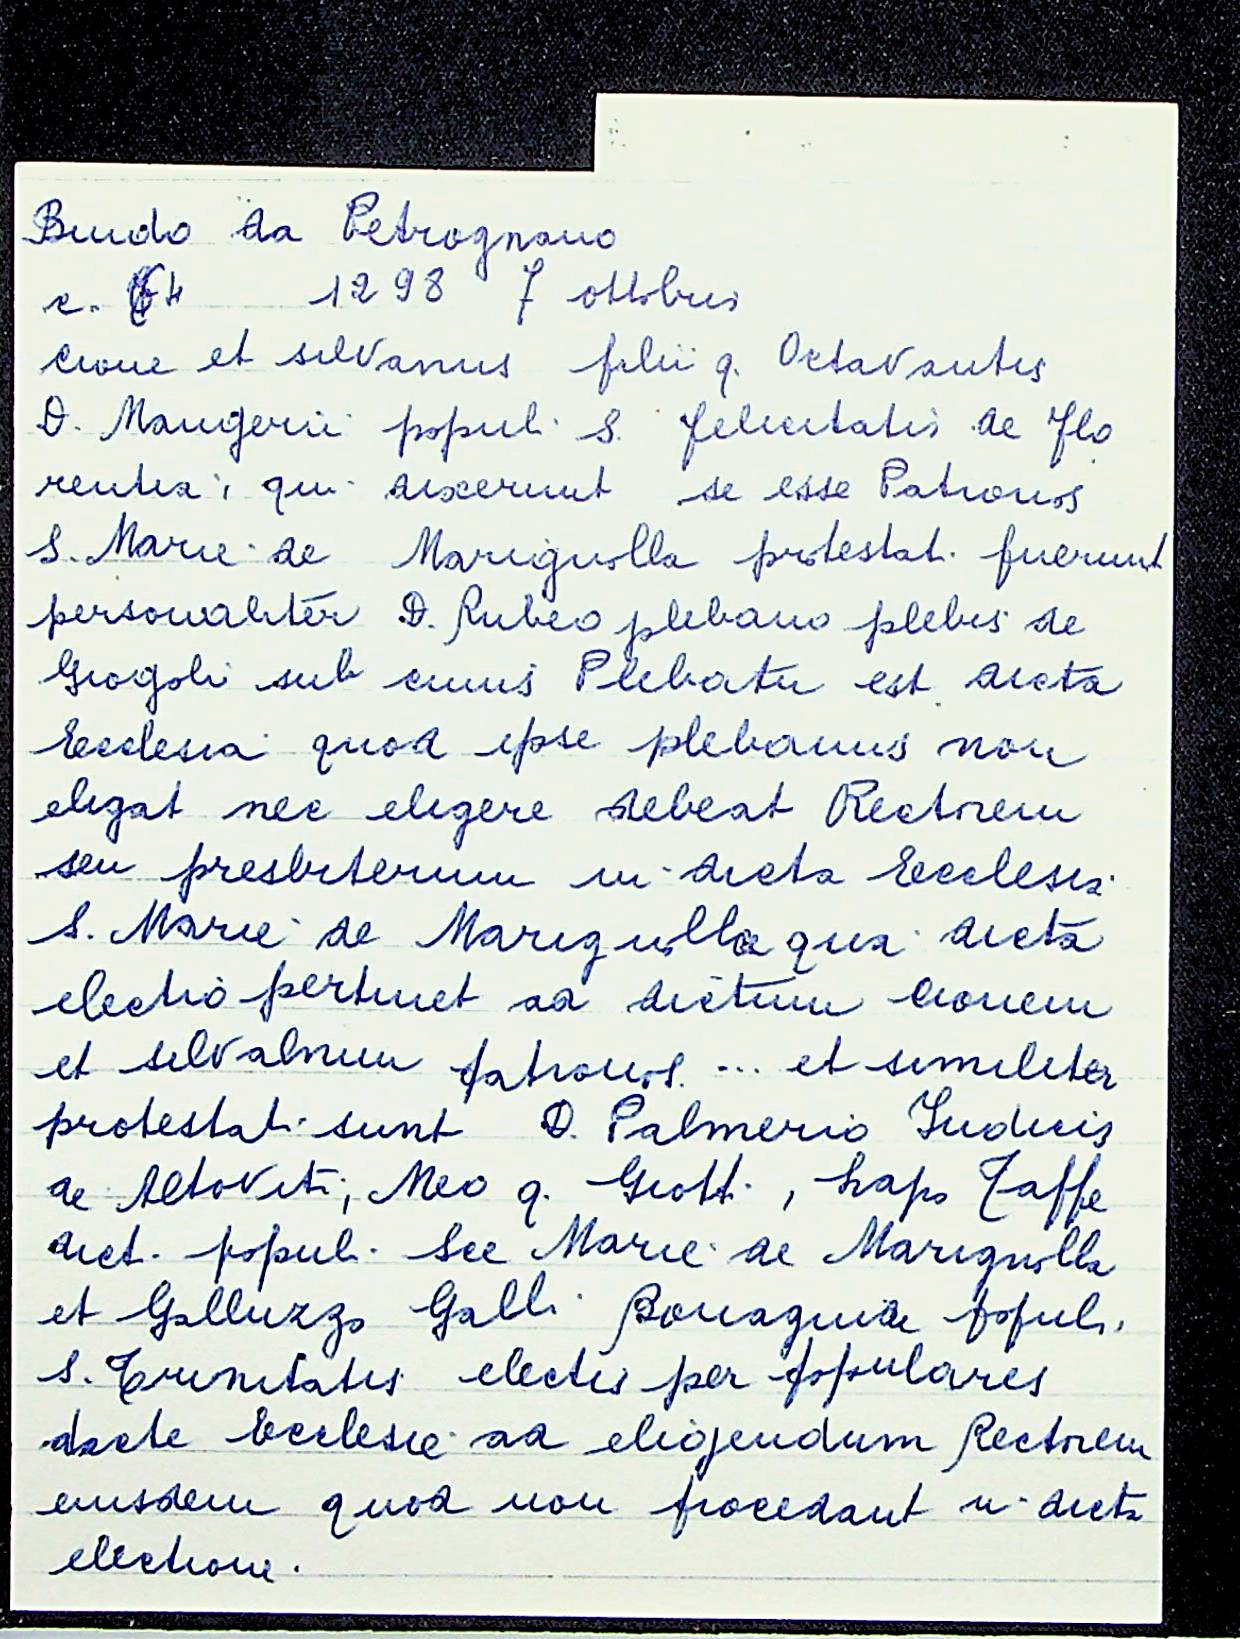 Bindo da Petrognano
c. 64 1298 7 ottobris
Cione et silvanus filii q. Octavantis
D. Maugerii popul. S. felicitatis de Flo
rentia, qui dixerunt se esse Patronos
S. Marie de Marignolla protestati fuerunt
personaliter D. Rubeo plebano plebis de
Giogoli sub cuius Plebatu est dicta
Ecclesia quod ipse plebanus non
eligat nec eligere debeat Rectorem
seu presbiterum in dicta Ecclesia
S. Marie de Marignolla quia dicta
electio pertinet ad dictum Cionem
et silvalnum patronos ... et similiter
protestati sunt D. Palmerio Iudicis
de Altoviti, Meo q. Giotti, Lapo Zaffe
dict. popul. Sce Marie de Marignolla
et Galluzzo Galli Bonaguide popul.
S. Trinitatis electis per populares
dicte Ecclesie ad eligendum Rectorem
eiusdem quod non procedant in dicta
electione.